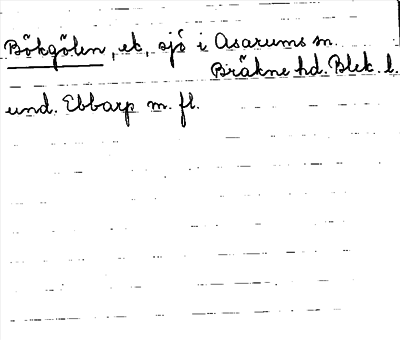 Bökgölen, ek, sjö i Asarums sn.
Bräkne hd. Blek. l.
und. Ebbarp m. fl.